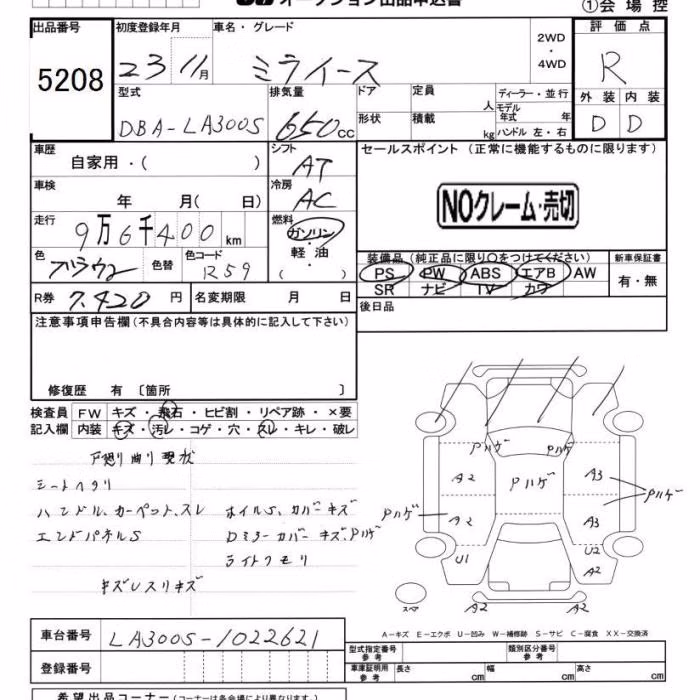 オークション出品申込書
①会場控
出品番号
5208
初度登録年月
23 11月
車名・グレード
ミライース
2WD
・
4WD
評価点
R
外装 内装
D D
型式
DBA-LA300S
排気量
650cc
ドア
形状
定員
人
積載
kg
ディーラー・並行
モデル年式 年
ハンドル 左・右
車歴
自家用・( )
シフト
AT
セールスポイント (正常に機能するものに限ります)
NOクレーム・売切
車検
年 月( 日)
冷房
AC
走行
9万6千400km
燃料
ガソリン
・
軽油
( )
色
ブラウン
色替
色コード
R59
装備品 (純正品に限り○をつけてください)
PS PW ABS エアB AW
SR ナビ TV カワ
新車保証書
有・無
R券
7.420円
名変期限 月 日
後日品
注意事項申告欄(不具合内容等は具体的に記入して下さい)
修復歴 有〔箇所 〕
検査員
記入欄
FW キズ・飛石・ヒビ割・リペア跡・×要
内装 キズ・汚レ・コゲ・穴・スレ・キレ・破レ
シートヘタリ
ハンドル、カーペット、スレ
エンドパネルS
ホイルS、カバーキズ
Dミラーカバーキズ、Pハゲ
ライトクモリ
キズUスリキズ
Pハゲ Pハゲ
A2 Pハゲ A3 Pハゲ
Pハゲ A2 A3
U1 U2
A2
スペア A2 A2
A-キズ E-エクボ U-凹み W-補修跡 S-サビ C-腐食 XX-交換済
車台番号
LA300S-1022621
登録番号
型式指定番号
参考
類別区分番号
参考
車庫証明用
参考
長さ cm
幅 cm
高さ cm
希望出品コーナー(コーナーは各会場により異なります。)